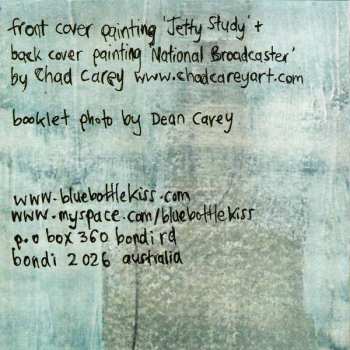 front cover painting 'Jetty Study' +
back cover painting 'National Broadcaster'
by Chad Carey www.chadcareyart.com
booklet photo by Dean Carey
www.bluebottlekiss.com
www.myspace.com/bluebottlekiss
p.o box 360 bondi rd
bondi 2026 australia